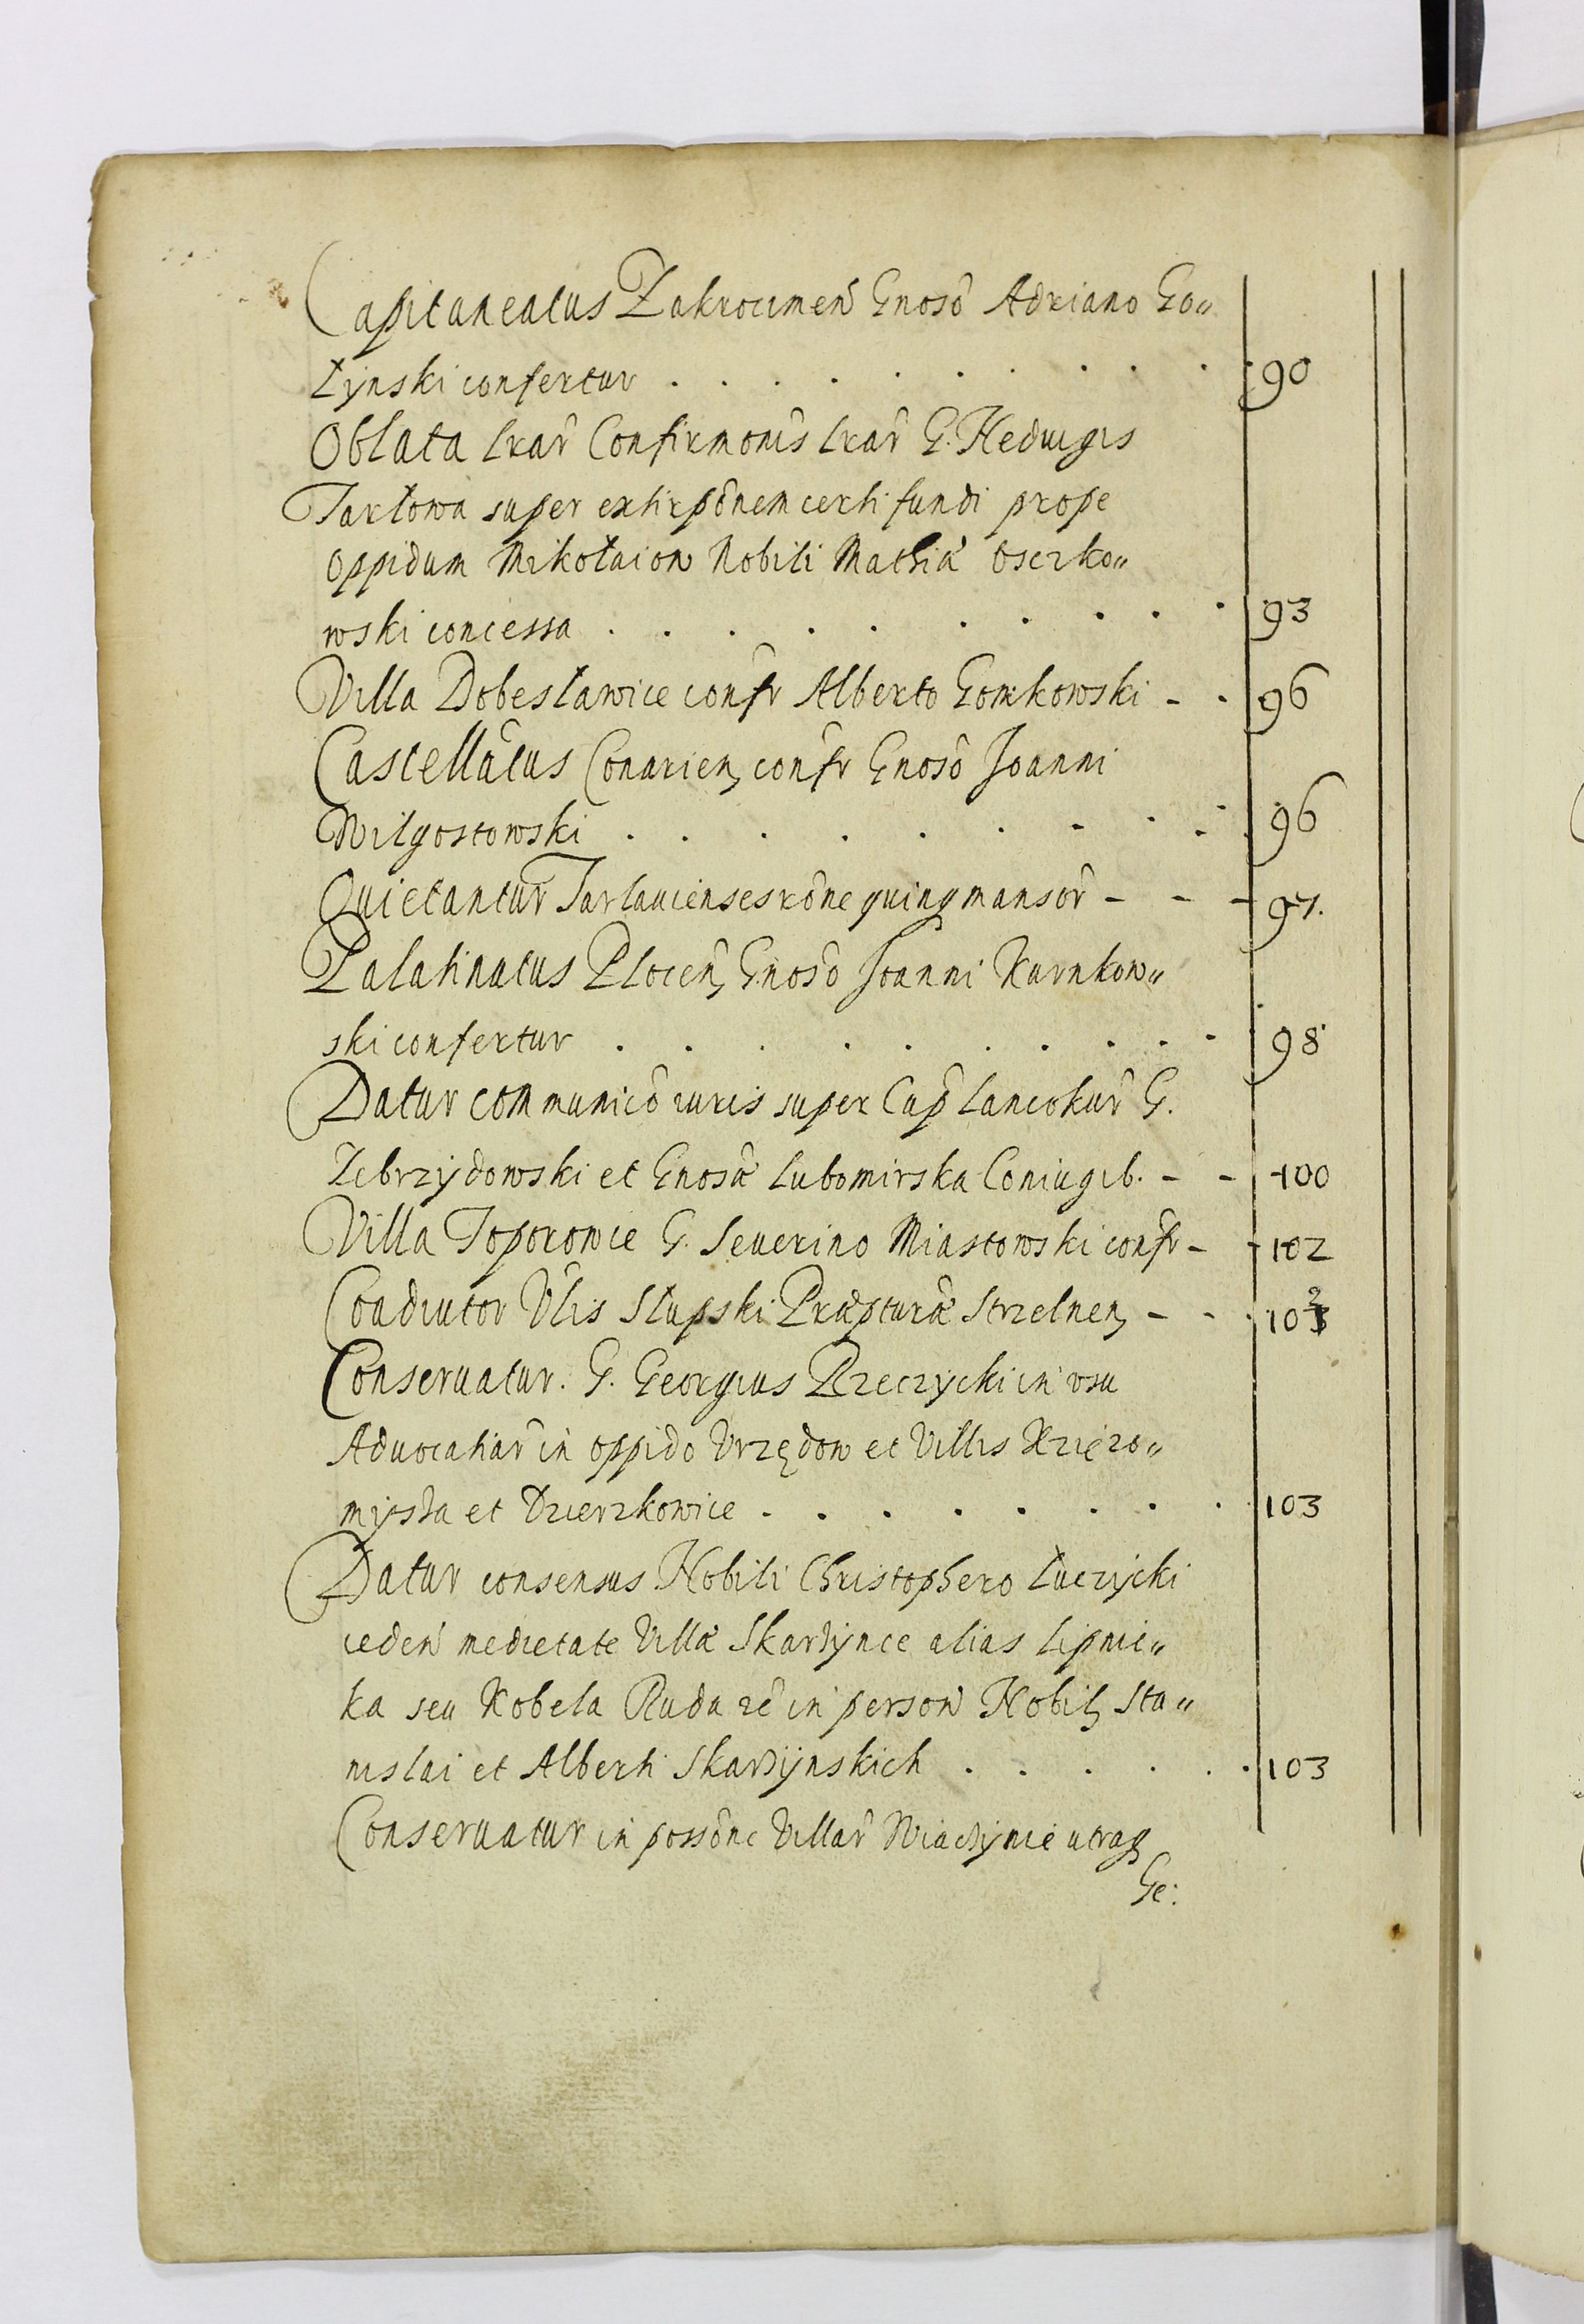 Capitaneatus Zakrocimen̄ Gnoso᷉ Adriano Go„
łÿnski confertur . . . . . . . . . . 90
Oblata Lrar᷉ Confirmonis᷉ Lrar᷉ G. Heduigis
Tarłowa super extirpōnem certi fundi prope
oppidum Mikołaiow Nobili Mathiæ Oserko„
wski concessa . . . . . . . . . . 93
Villa Dobesławice conf᷉r Alberto Gomkowski - . 96
Castellātus Conarien, conf᷉r Gnosō Joanni
Wilgostowski . . . . . . . . . . 96
Quietantur Tarlauiensesrōne quinq mansor᷉ - - - 97.
Palatinatus Plocen᷉, Gnosō Joanni Karnkow„
ski confertur . . . . . . . . . . 98
Datur communicō iuris super Cap᷉ Lanckor᷉ G.
Zebrzÿdowski et Gnosæ Lubomirska Coniugib. - - 100
Villa Toporowce G. Seuerino Miastowski conf᷉r - - 102
Coadiutor Vl᷉is Slupski Præp᷉turæ Strzelnen, - . . 102
Conseruatur. G. Georgius Rzeczycki in vsu
Aduocatiar᷉ in oppido Vrzędow et Villis Xrięzo„
mÿsła et Dzierzkowice . . . . . . . . 103
Datur consensus Nobili Christophero Łuczÿcki
ceden᷉ medietate Villæ Skarzÿnce alias Lipnic„
ka seu Kobela Ruda rē in person᷉ Nobil, Sta„
nislai et Alberti Skarzÿnskich . . . . . . 103
Conseruatur in possōne Villar᷉ utraq
Ge: